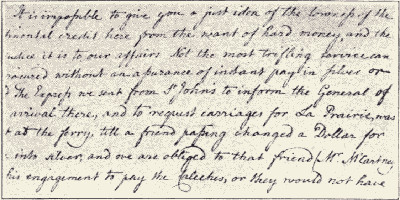 It is impossible to give you a just idea of the lowness of the
tinental credit here from the want of hard money, and the
udice it is to our affairs Not the most trifling service can
rocured without an assurance of instant pay in silver or
The Express we sent from St Johns to inform the General of
arrival there, and to request carriages for La Prairie, was
at the ferry, till a friend passing changed a Dollar for
into silver, and we are obliged to that friend (Mr. McCartney
his engagement to pay the caleches, or they would not have